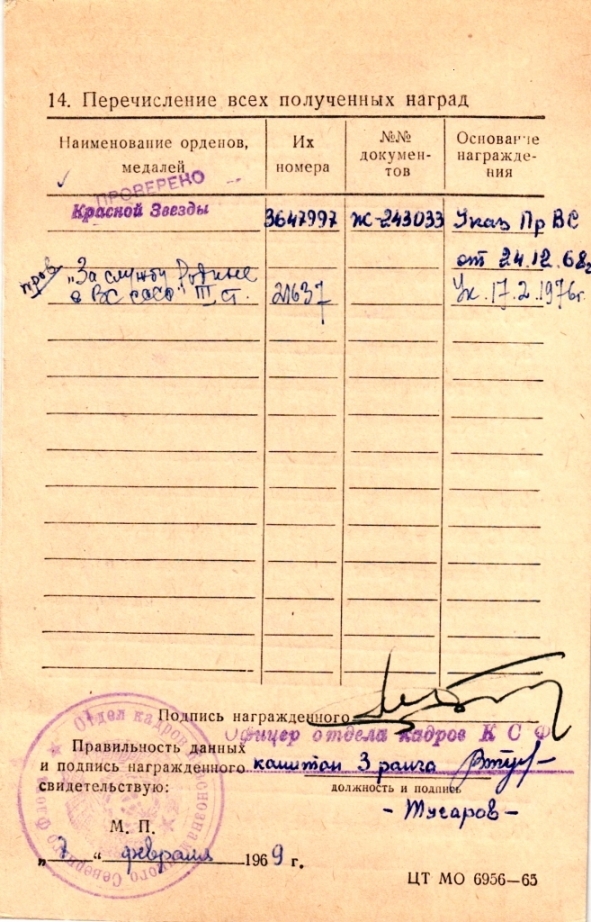 14. Перечисление всех полученных наград
Наименование орденов, медалей
Их номера
№№ докумен-тов
Основание награжде-ния
ПРОВЕРЕНО
Красной Звезды 3647997 Ж-243033 Указ Пр ВС
от 24.12.68г
пров „За службу Родине
в ВС СССР" III ст. 21637 Ук. 17.2.1976г.
Подпись награжденного
Офицер отдела кадров К С Ф
Правильность данных
и подпись награжденного капитан 3 ранга
свидетельствую: должность и подпись
- Тусаров -
М. П.
„7" февраля 1969 г.
ЦТ МО 6956—65
Отдел кадров Краснознаменного Северного Флота